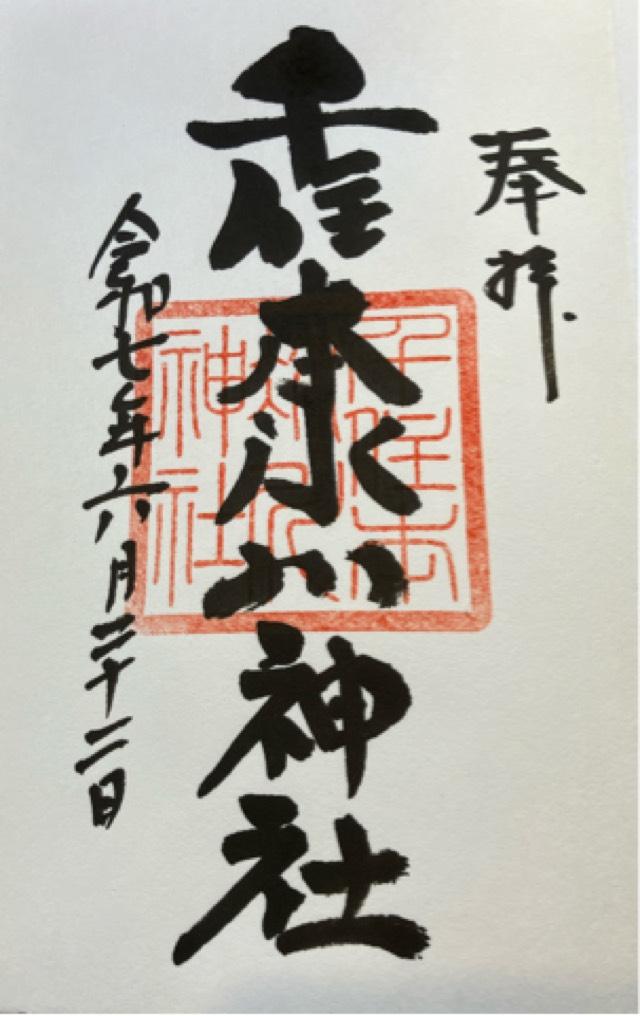 奉拝
千住本氷川神社
令和七年六月二十二日
千住本
氷川
神社